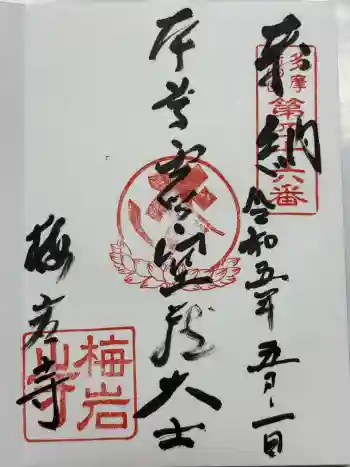 多摩
第五十六番
奉納
令和五年五月一日
本尊虚空蔵大士
梅岩寺
梅岩寺